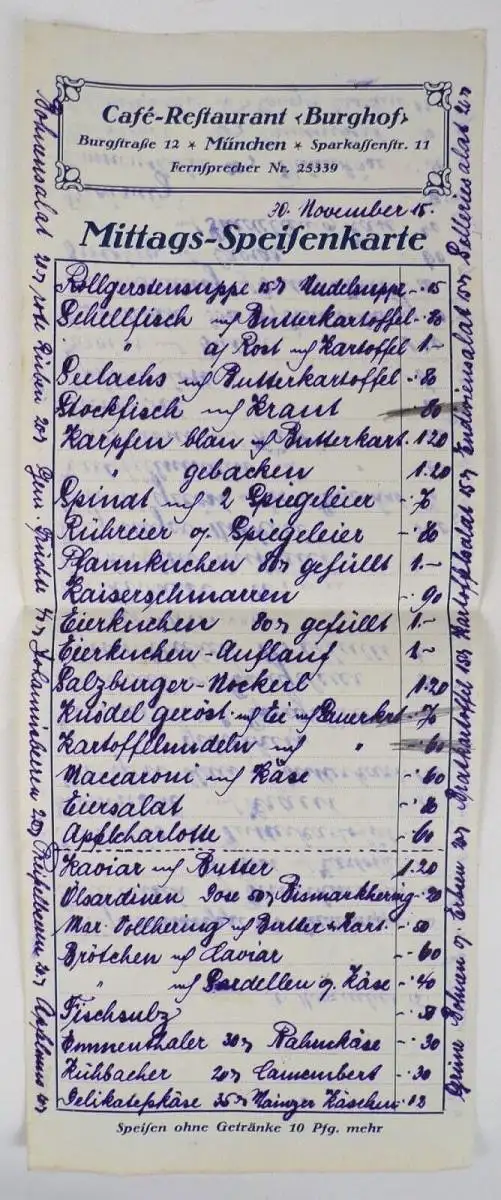 Café-Restaurant ‹Burghof›
Burgstraße 12 * München * Sparkassenstr. 11
Fernsprecher Nr. 25339
30. November 15.
Mittags-Speisenkarte
Rollgerstensuppe 15 Nudelsuppe -. 15
Schellfisch m/ Butterkartoffel -. 80
" a/ Rost m/ Kartoffel 1.-
Seelachs m/ Butterkartoffel -. 80
Stockfisch m/ Kraut -. 80
Karpfen blau m/ Butterkart. 1.20
" gebacken 1.20
Spinat m/ 2 Spiegeleier -. 70
Rühreier o/ Spiegeleier -. 80
Pfannkuchen 80 gefüllt 1.-
Kaiserschmarren -. 90
Eierkuchen 80 gefüllt 1.-
Eierkuchen-Auflauf 1.-
Salzburger-Nockerl 1.20
Knödel geröst. m/ Ei m/ Sauerkrt -. 70
Kartoffelnudeln m/ " -. 60
Maccaroni m/ Käse -. 60
Eiersalat -. 80
Apfelcharlotte -. 60
Kaviar m/ Butter 1.20
Ölsardinen Dose 80 Bismarkhering -. 20
Mar. Vollhering m/ Butter & Kart. -. 50
Brötchen m/ Caviar -. 60
" m/ Sardellen o/ Käse -. 40
Fischsulz
Emmenthaler 30 Rahmkäse -. 30
Kühbacher 20 Camembert -. 30
Delikateßkäse 35 Mainzer Käschen -. 12
Speisen ohne Getränke 10 Pfg. mehr
Bohnensalat 20 rote Rüben 20 Gem. Früchte Johannisbeeren 20 Preißelbeeren 20 Apfelmus 20
Grüne Bohnen o/ Erbsen 20 Bratkartoffel 15 Kartoffelsalat 15 Endiviensalat 15 Selleriesalat 20